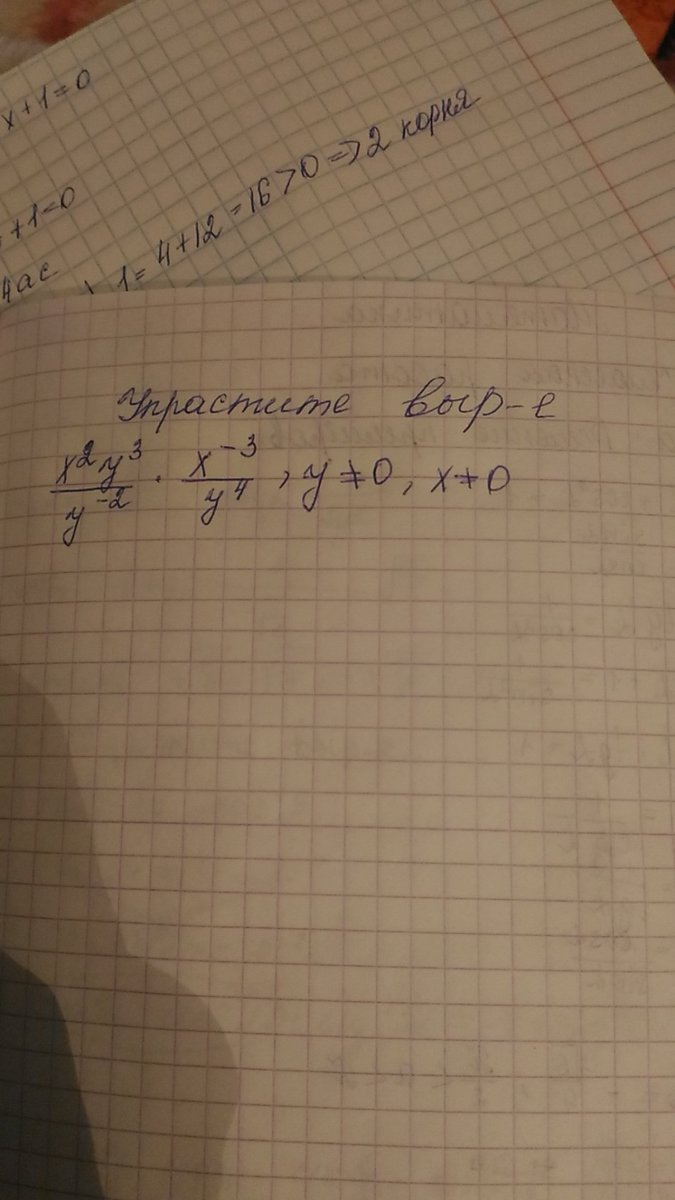 x+1=0
+1=0
4ac
1=4+12=16>0=>2 корня
Упрастите выр-е
x²y³/y⁻² · x⁻³/y⁴, y≠0, x≠0